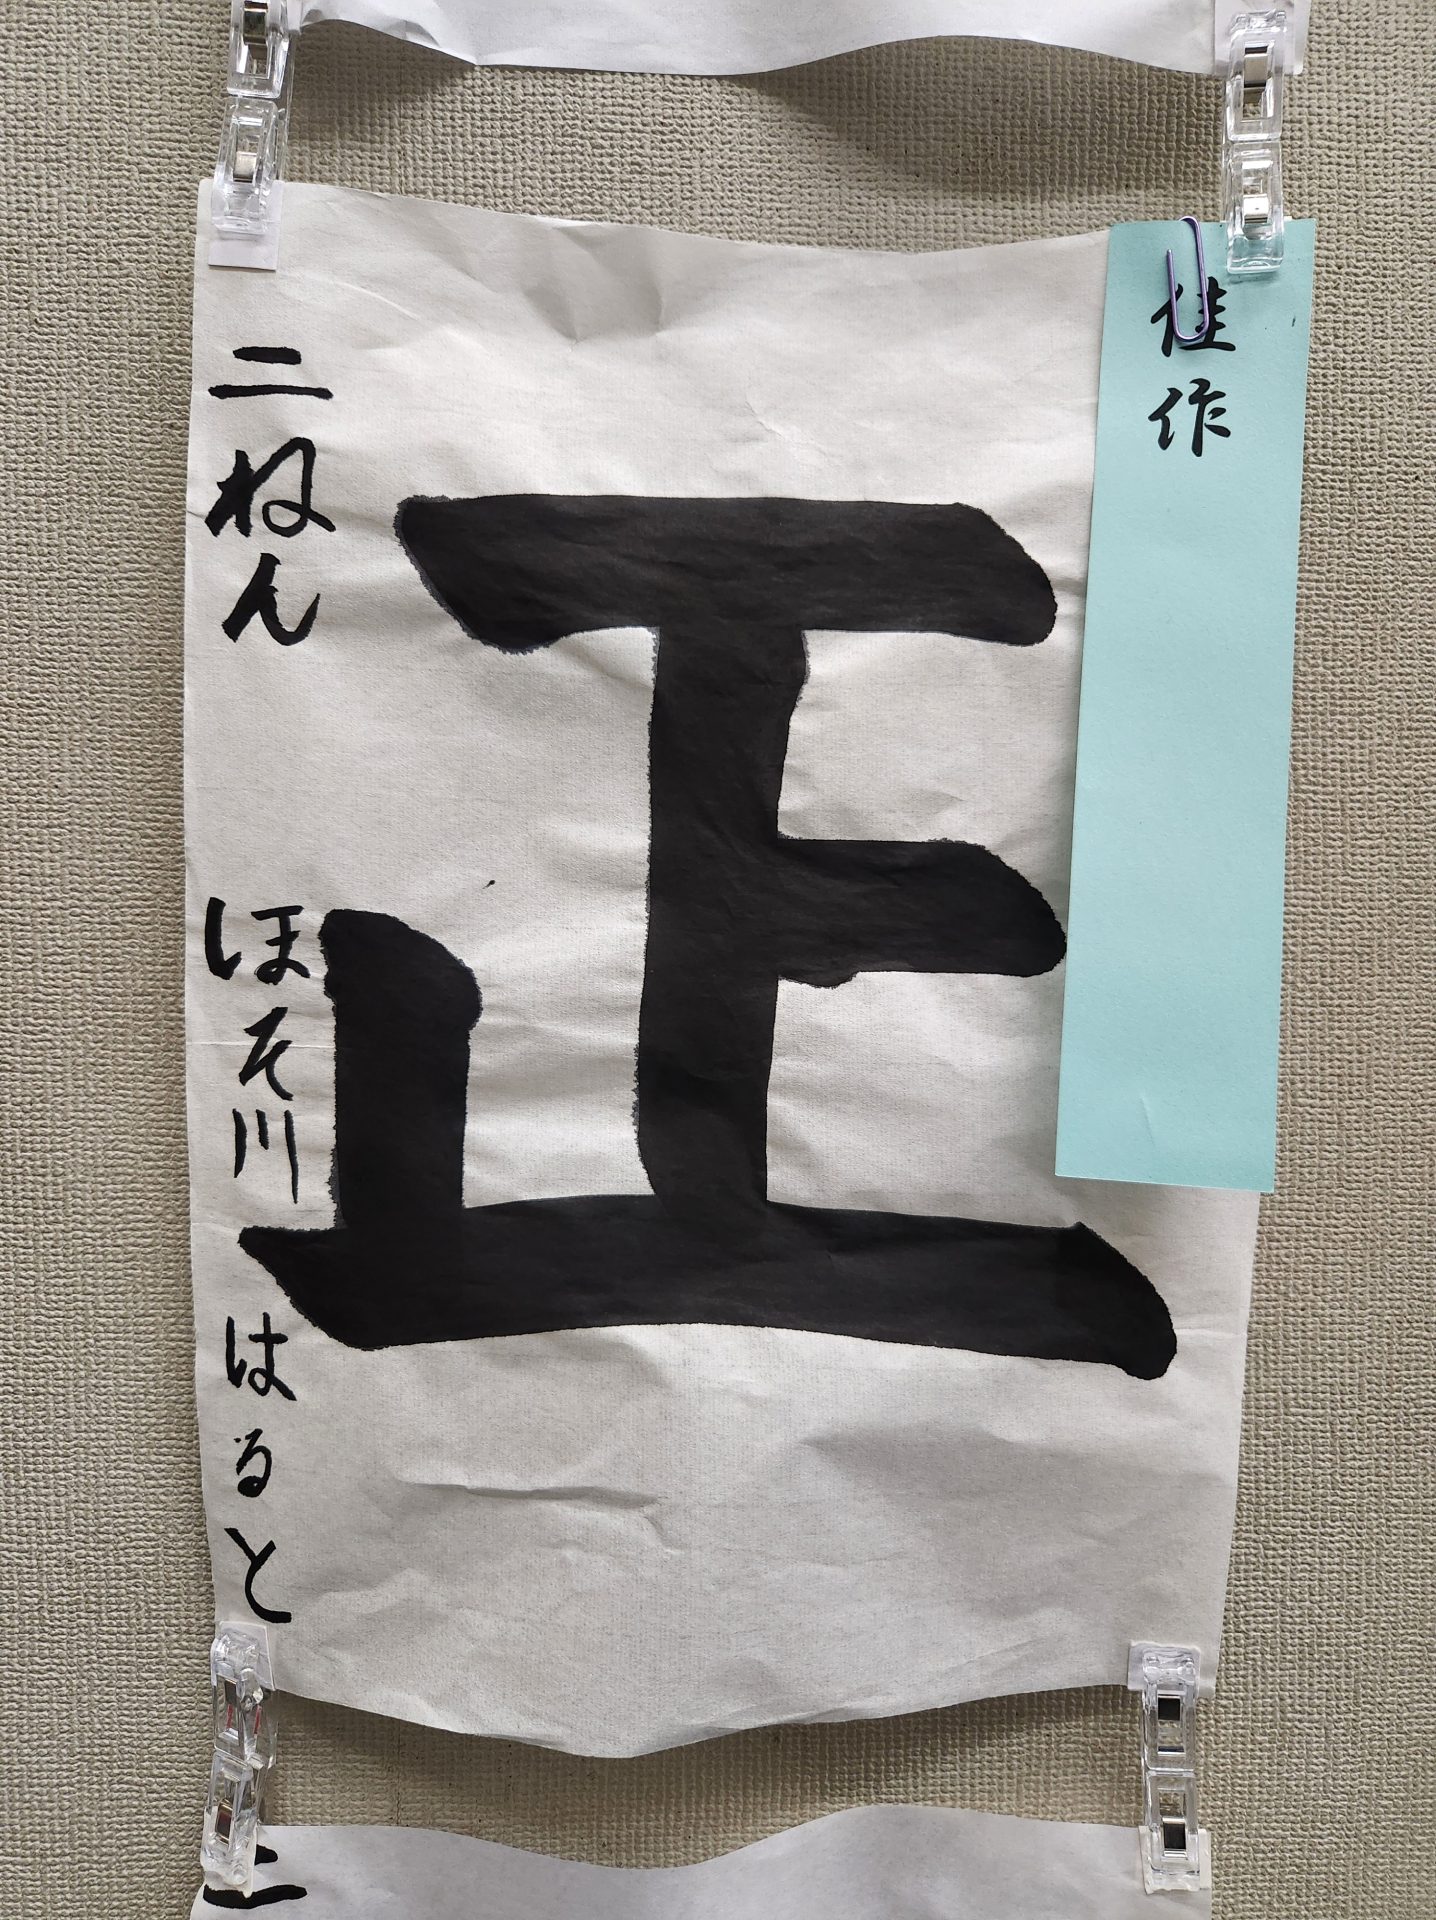 佳作
正
二ねん ほそ川 はると